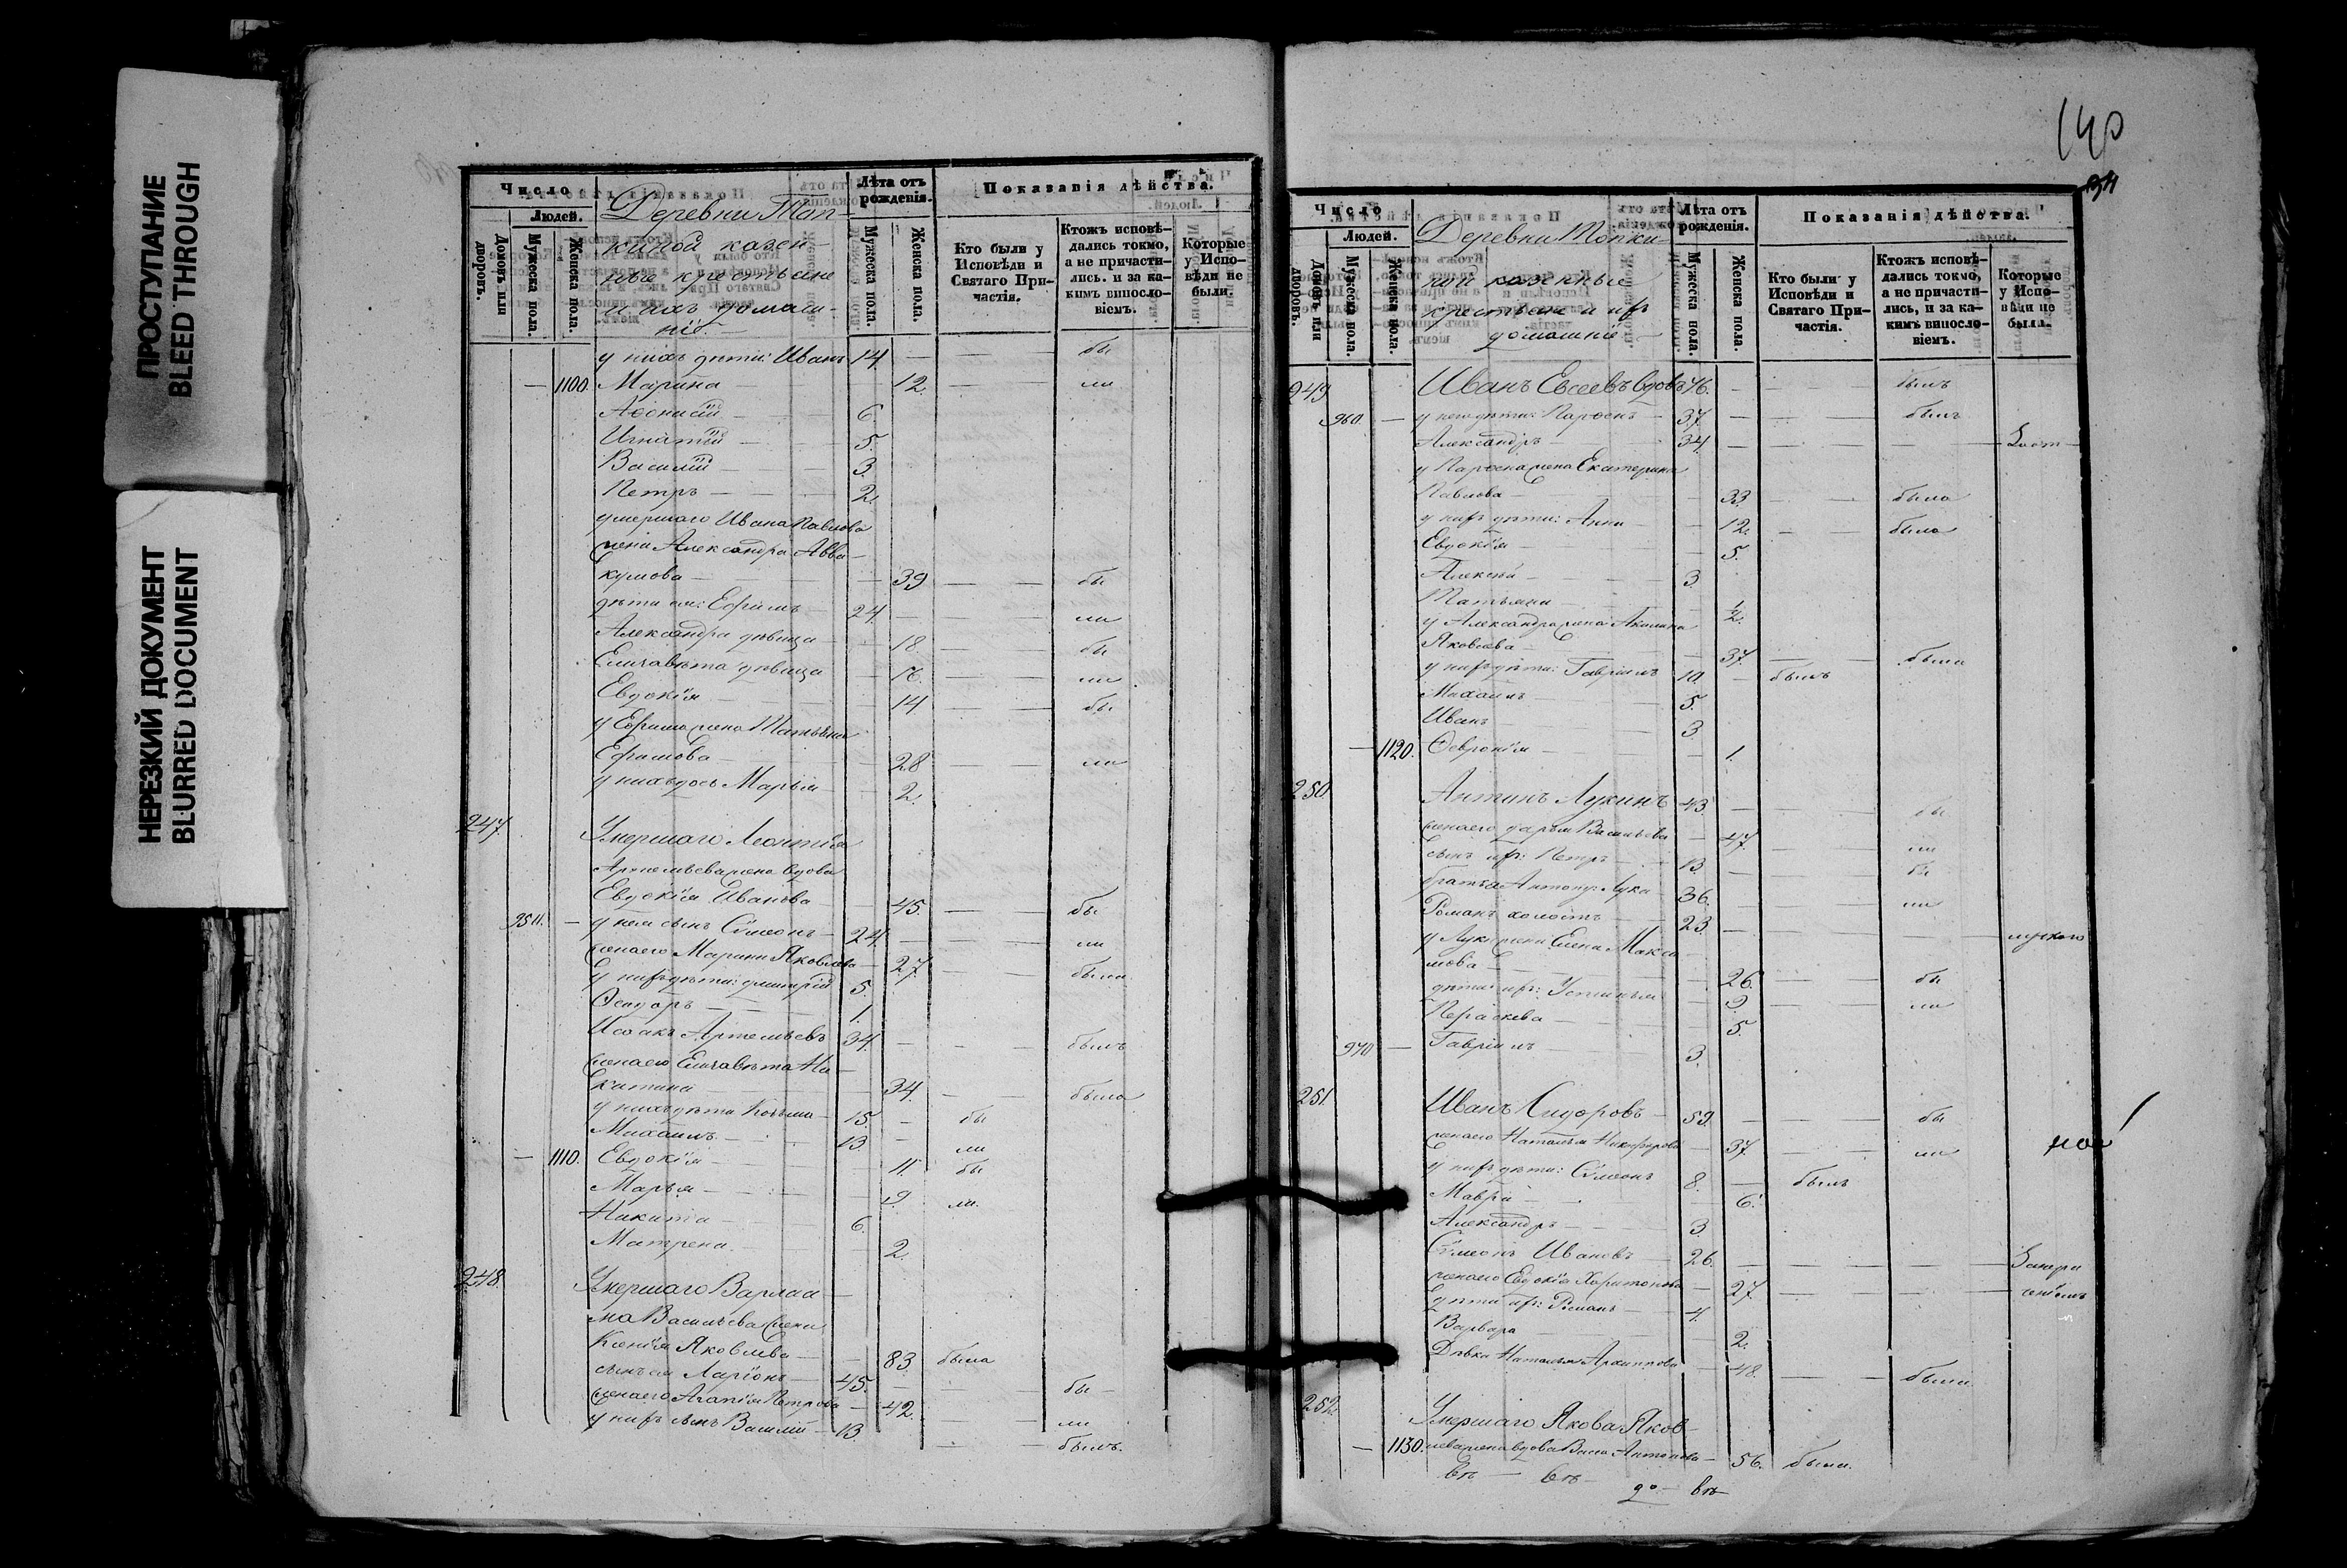 ПРОСТУПАНИЕ
BLEED THROUGH
НЕРЕЗКИЙ ДОКУМЕНТ
BLURRED DOCUMENT
Число
Людей.
Домовъ или дворовъ.
Мужеска пола.
Женска пола.
Деревни Топ-
киной казен-
ные крестьяне
и ихъ домаш-
ніе.
Лѣта отъ рожденія.
Мужеска пола.
Женска пола.
Показанія дѣйства.
Кто были у Исповѣди и Святаго При-частія.
Ктожъ исповѣ-дались токмо, а не причасти-лись. и за ка-кимъ винносло-віемъ.
Которые у Испо-вѣди не были.
у нихъ дѣти: Иванъ 14. — — бы
— 1100. Марина — 12. — — ли
Аѳонасій — 6.
Игнатій — 5.
Василій — 3
Петръ — 2.
умершаго Ивана Павлова
жена Александра Авва-
кумова — 39 — — бы
дѣти ея: Ефимъ — 24. — — ли
Александра дѣвица — 18. — — бы
Елисавета дѣвица — 16. — — ли
Евдокія — 14 — — бы
у Ефима жена Татьяна
Ефимова — 28 — — ли
у нихъ дочь Марья — 2.
247. Умершаго Леонтія
Артемьева жена вдова
Евдокія Иванова — 45. — — бы
950. — у нея сынъ Сѷмеонъ — 24. — — ли
жена его Марина Яковлева — 27. — — была
у нихъ дѣти: Димитрій 5.
Ѳеодоръ — 1.
Исаакъ Артемьевъ 34. — — былъ
жена его Елисавета Ни-
китина — 34. — — была
у нихъ дѣти Козьма — 15. — бы
Михаилъ — 13. — ли
— 1110. Евдокія — 11. бы
Марья — 9. ли.
Никита — 6.
Матрена — 2.
248. Умершаго Варлаа-
ма Васильева жена
Ксенія Яковлева — 83 была
сынъ ея Ларіонъ — 45. — — бы
жена его Агапія Петрова — 42. — — ли
у нихъ сынъ Василій — 13. — — былъ.
140
Число
Людей.
Домовъ или дворовъ.
Мужеска пола.
Женска пола.
Деревни Топки-
ной казенные
крестьяне и ихъ
домашніе
Лѣта отъ рожденія.
Мужеска пола.
Женска пола.
Показанія дѣйства.
Кто были у Исповѣди и Святаго При-частія.
Ктожъ исповѣ-дались токмо, а не причасти-лись, и за ка-кимъ винносло-віемъ.
Которые у Испо-вѣди не были.
249 Иванъ Евсеевъ вдовъ 76. — — былъ
960. — у него дѣти: Парѳенъ — 37. — — былъ
Александръ — 34. — — —
у Парѳена жена Екатерина
Павлова — 33. — — была
у нихъ дѣти: Анна — 12. — — была
Евдокія — 5.
Алексѣй — 3
Татьяна — 1/2.
у Александра жена Акилина
Яковлева — 37. — — была
у нихъ дѣти: Гавріилъ 10. — былъ
Михаилъ — 5.
Иванъ — 3
— 1120. Ѳевронія — 1.
250. Антипъ Лукинъ 43 — — бы
жена его Дарья Васильева — 47. — — ли
сынъ ихъ: Петръ — 13. — — бы
братья Антипу: Лука 36. — — ли
Романъ холостъ — 23. — — —
у Луки жена Елена Макси-
мова — 26. — — бы
дѣти ихъ: Устинья — 9. — — ли
Пераскева — 5.
970 — Гавріилъ — 3.
251. Иванъ Сидоровъ — 59. — — бы
жена его Наталья Никифорова — 37. — — ли
у нихъ дѣти: Сѷмеонъ 8. — былъ
Мавра — 6.
Александръ — 3.
Сѷмеонъ Ивановъ — 26. — — —
жена его Евдокія Харитонова — 27. — — —
дѣти ихъ: Романъ — 4.
Варвара — 2.
Дѣвка Наталья Архиппова — 48. — — была.
252. Умершаго Якова Яков-
— 1130. лева жена вдова Васса Антонова — 56. была.